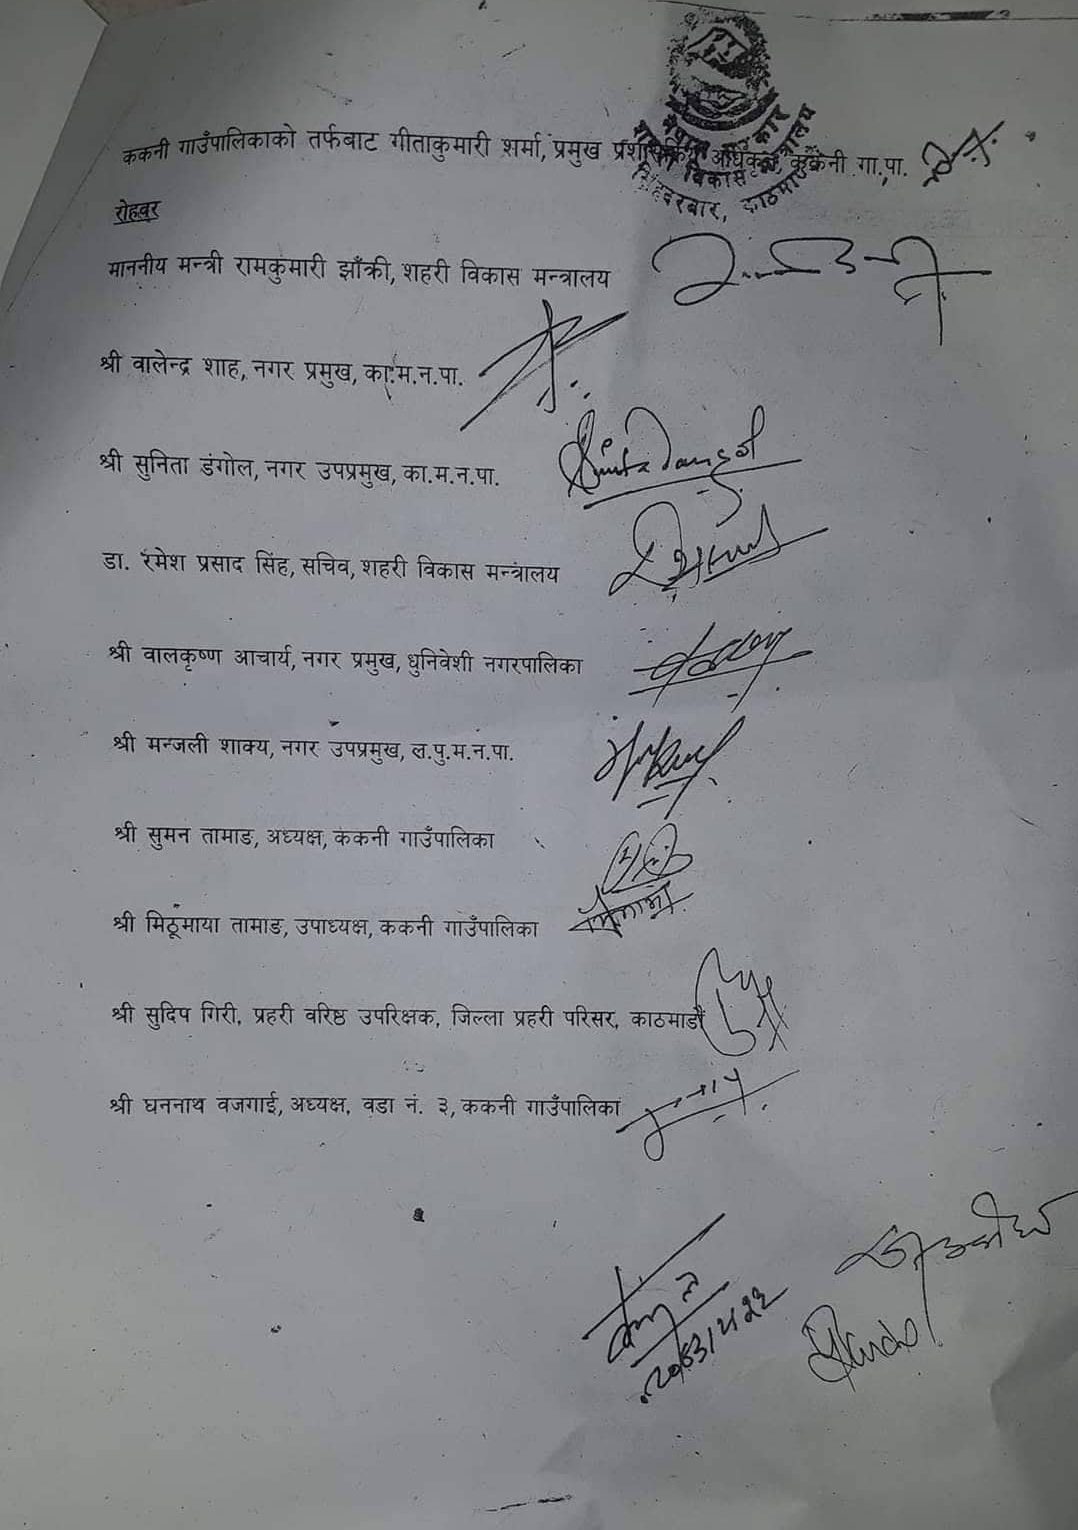 नेपाल सरकार
शहरी विकास मन्त्रालय
सिंहदरबार, काठमाडौं
ककनी गाउँपालिकाको तर्फबाट गीताकुमारी शर्मा, प्रमुख प्रशासकिय अधिकृत, ककनी गा.पा.
रोहवर
माननीय मन्त्री रामकुमारी झाँक्री, शहरी विकास मन्त्रालय
श्री वालेन्द्र शाह, नगर प्रमुख, का.म.न.पा.
श्री सुनिता डंगोल, नगर उपप्रमुख, का.म.न.पा. Sunita Dangol
डा. रमेश प्रसाद सिंह, सचिव, शहरी विकास मन्त्रालय
श्री वालकृष्ण आचार्य, नगर प्रमुख, धुनिवेशी नगरपालिका
श्री मन्जली शाक्य, नगर उपप्रमुख, ल.पु.म.न.पा.
श्री सुमन तामाङ, अध्यक्ष, ककनी गाउँपालिका
श्री मिठूमाया तामाङ, उपाध्यक्ष, ककनी गाउँपालिका
श्री सुदिप गिरी, प्रहरी वरिष्ठ उपरिक्षक, जिल्ला प्रहरी परिसर, काठमाडौं
श्री घननाथ वजगाई, अध्यक्ष, वडा नं. ३, ककनी गाउँपालिका